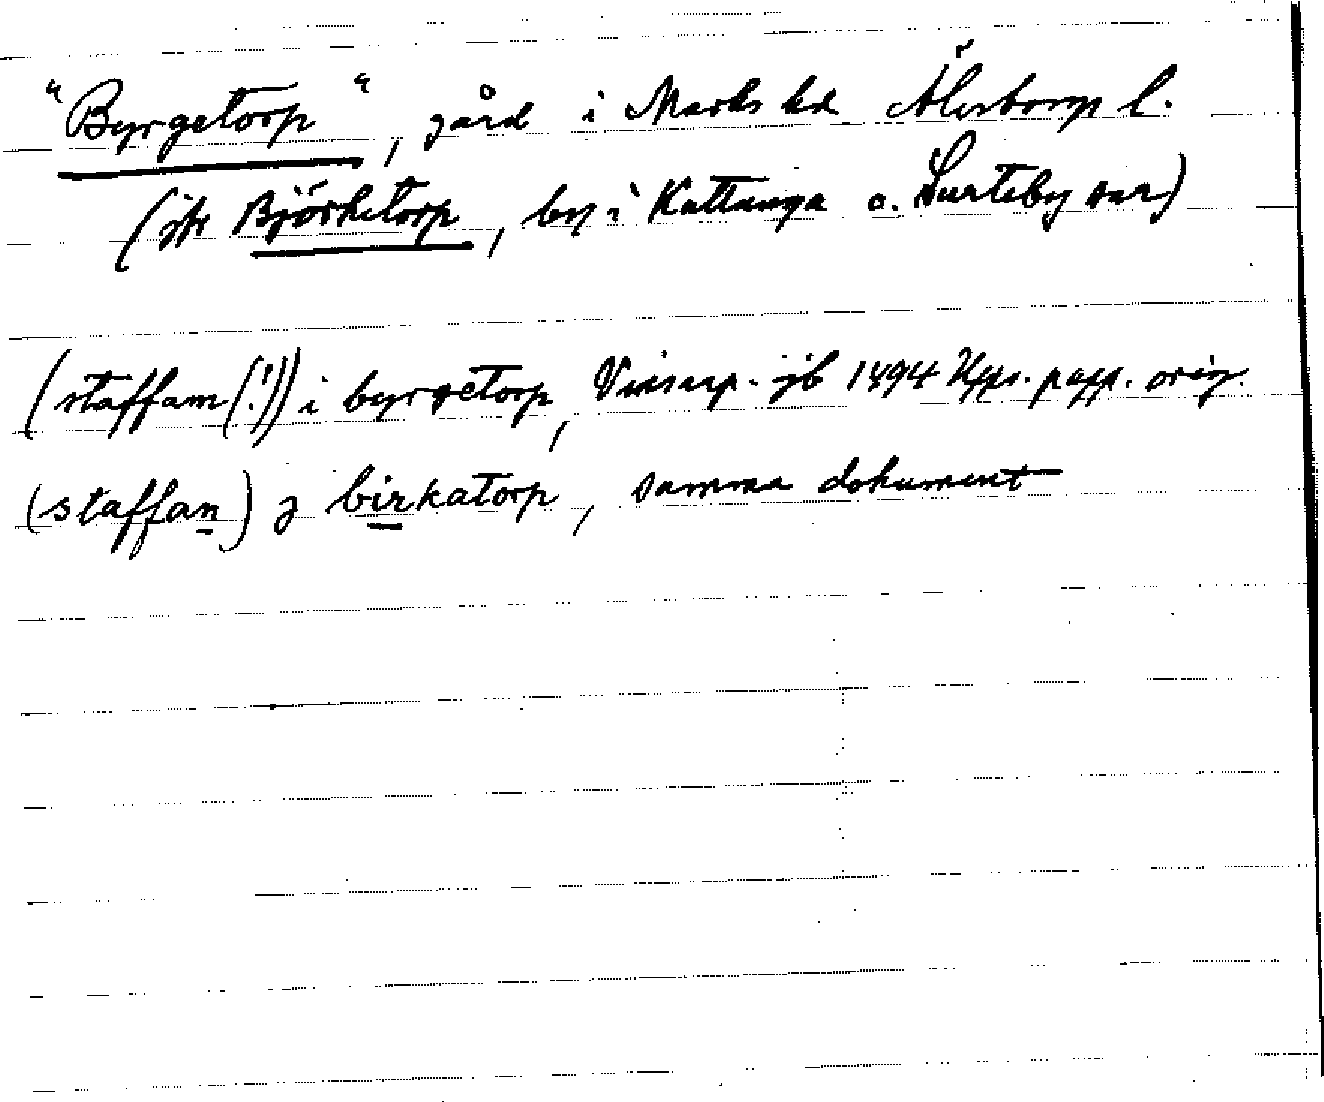 "Byrgetorp", gård i Marks hd Älvsborgs l.
(jfr Björketorp, by i Kattunga o. Surteby snr)
(staffam(!)) i byrgetorp, Vinsarp. jb 1494 Upps. papp. orig.
(staffan) j birkatorp, samma dokument